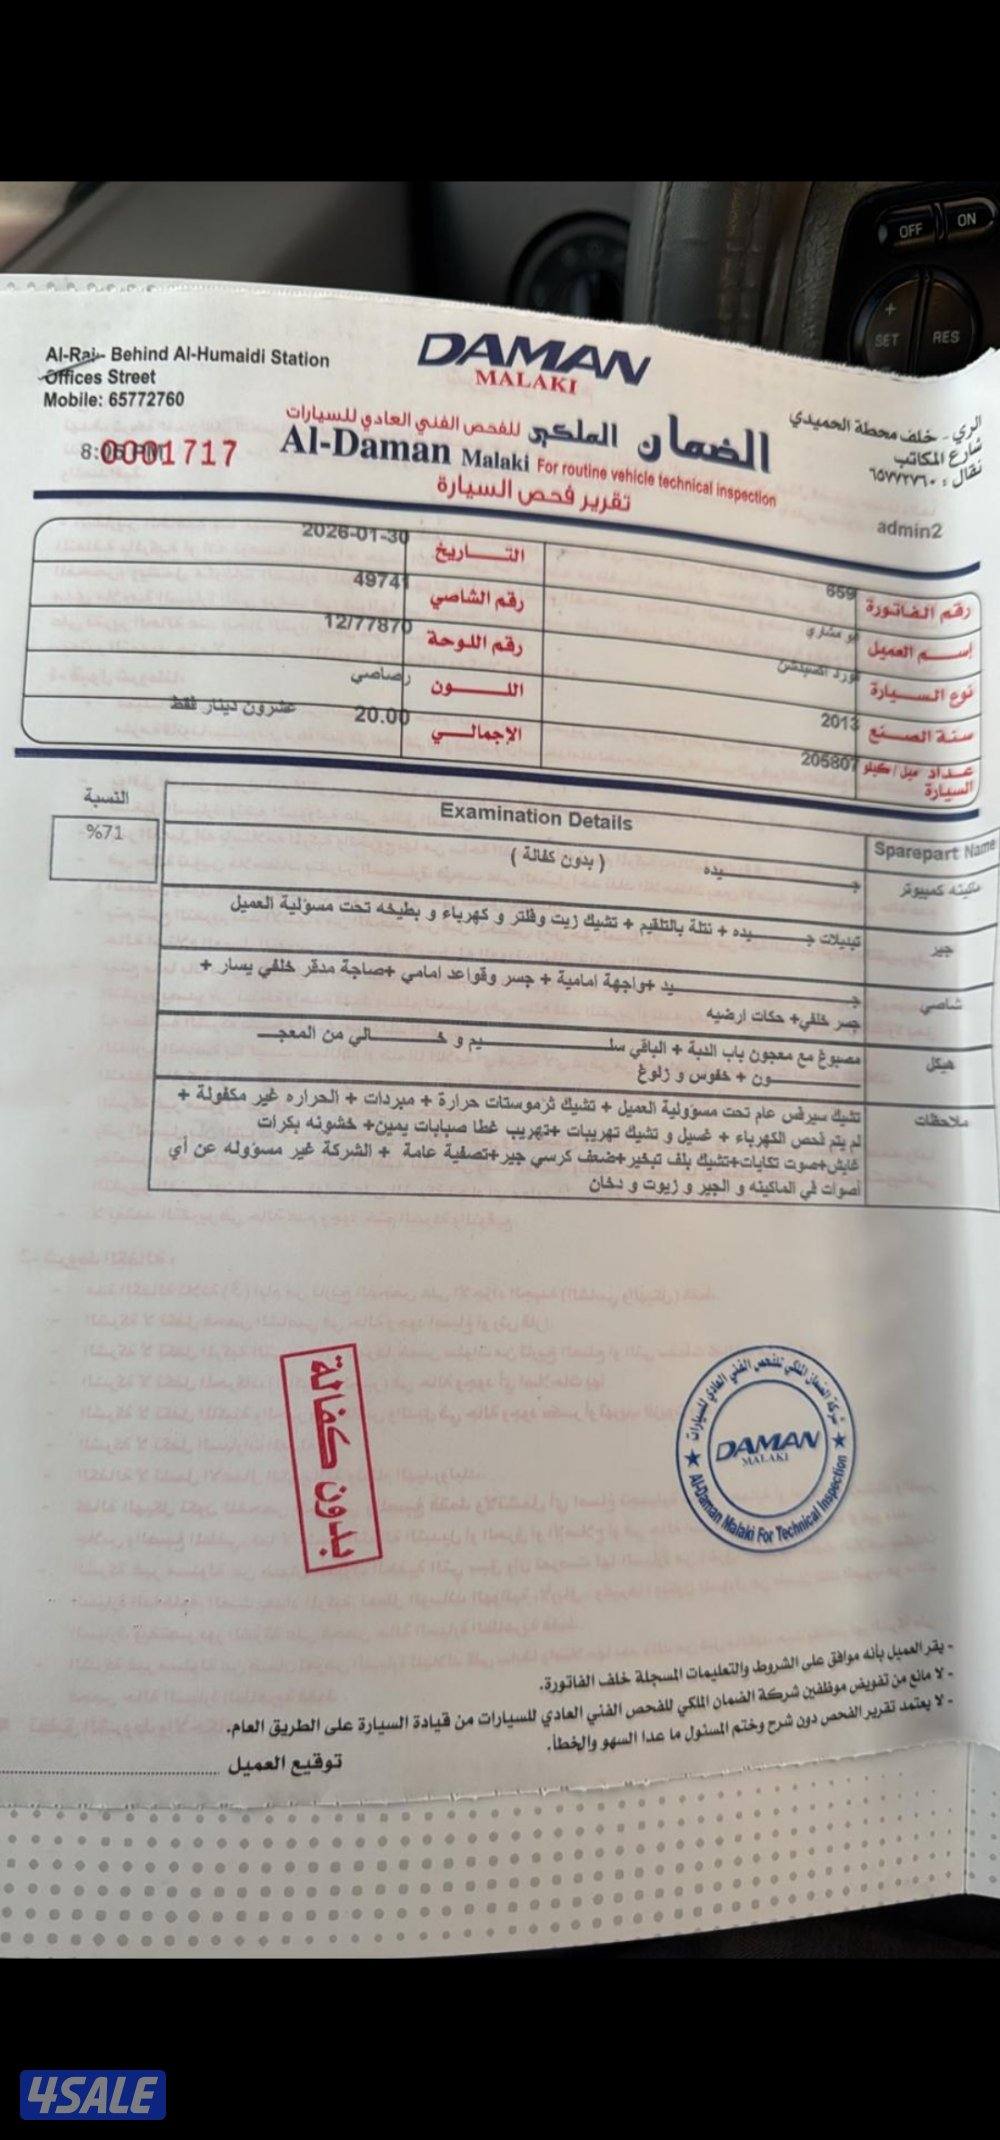 OFF ON
+
SET RES
DAMAN
MALAKI
Al-Rai- Behind Al-Humaidi Station
Offices Street
Mobile: 65772760
الري - خلف محطة الحميدي
شارع المكاتب
نقال : ٦٥٧٧٢٧٦٠
الضمان الملكي للفحص الفني العادي للسيارات
Al-Daman Malaki For routine vehicle technical inspection
0001717
تقرير فحص السيارة
admin2
رقم الفاتورة 659
التـــاريخ 2026-01-30
إســم العميل بو مشاري
رقم الشاصي 49741
نوع السـيارة فورد اكسبلشن
رقم اللوحة 12/77870
سنة الصنع 2013
اللـــون رصاصي
عــداد ميل / كيلو السيارة 205807
الإجمالـــي 20.00 عشرون دينار فقط
Sparepart Name Examination Details النسبة
ماكينه كمبيوتر جـــــيده ( بدون كفالة ) %71
جير تبديلات جـــــيده + نتلة بالتلقيم + تشيك زيت وفلتر و كهرباء و بطيخه تحت مسؤلية العميل
شاصي جـــــــيد +واجهة امامية + جسر وقواعد امامي +صاجة مدقر خلفي يسار +
جسر خلفي+ حكات ارضيه
هيكل مصبوغ مع معجون باب الدبة + الباقي سلـــــــيم و خـــــــالي من المعجــ
ـــــــون + خفوس و زلوغ
ملاحظات تشيك سيرفس عام تحت مسؤولية العميل + تشيك ثرموستات حرارة + مبردات + الحراره غير مكفولة +
لم يتم فحص الكهرباء + غسيل و تشيك تهريبات +تهريب غطا صبابات يمين+ خشونه بكرات
قايش+صوت تكايات+تشيك بلف تبخير+ضعف كرسي جير+تصفية عامة + الشركة غير مسؤوله عن أي
أصوات في الماكينه و الجير و زيوت و دخان
بدون كفالة
شركة الضمان الملكي للفحص الفني العادي للسيارات
DAMAN
MALAKI
Al-Daman Malaki For Technical Inspection
- يقر العميل بأنه موافق على الشروط والتعليمات المسجلة خلف الفاتورة.
- لا مانع من تفويض موظفين شركة الضمان الملكي للفحص الفني العادي للسيارات من قيادة السيارة على الطريق العام.
- لا يعتمد تقرير الفحص دون شرح وختم المسئول ما عدا السهو والخطأ.
توقيع العميل
4SALE